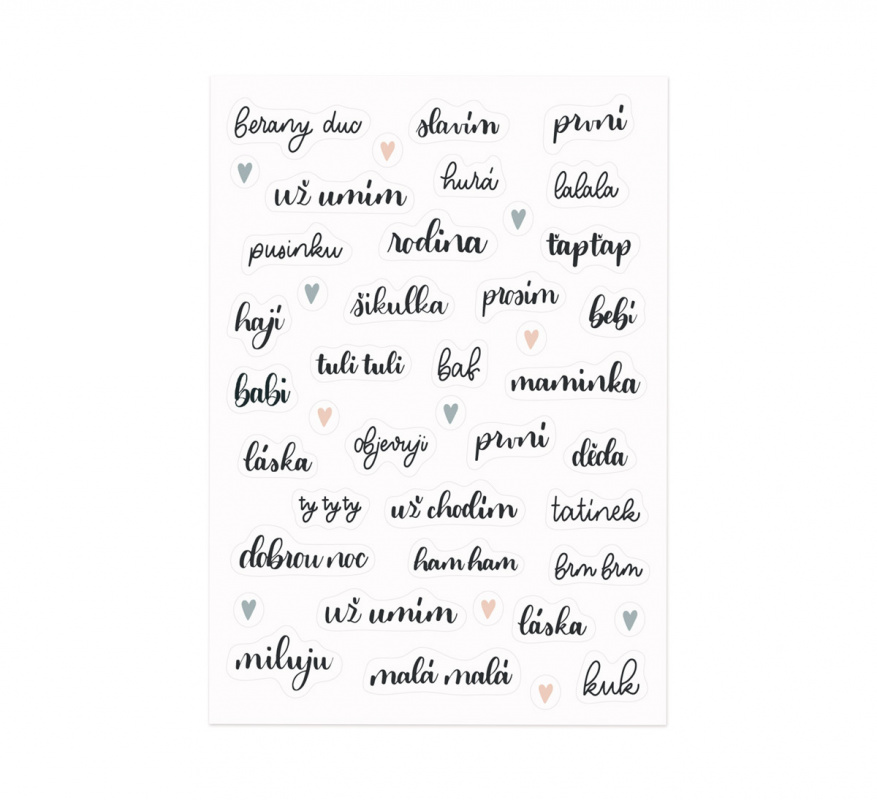 berany duc
slavím
první
už umím
hurá
lalala
pusinku
rodina
ťapťap
hají
šikulka
prosím
bebí
babi
tuli tuli
baf
maminka
láska
objevuji
první
děda
ty ty ty
už chodím
tatínek
dobrou noc
ham ham
brm brm
už umím
láska
miluju
malá malá
kuk